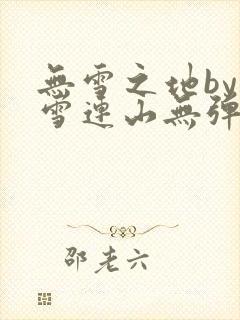 無雪之地by
雪連山無彈
邵老六